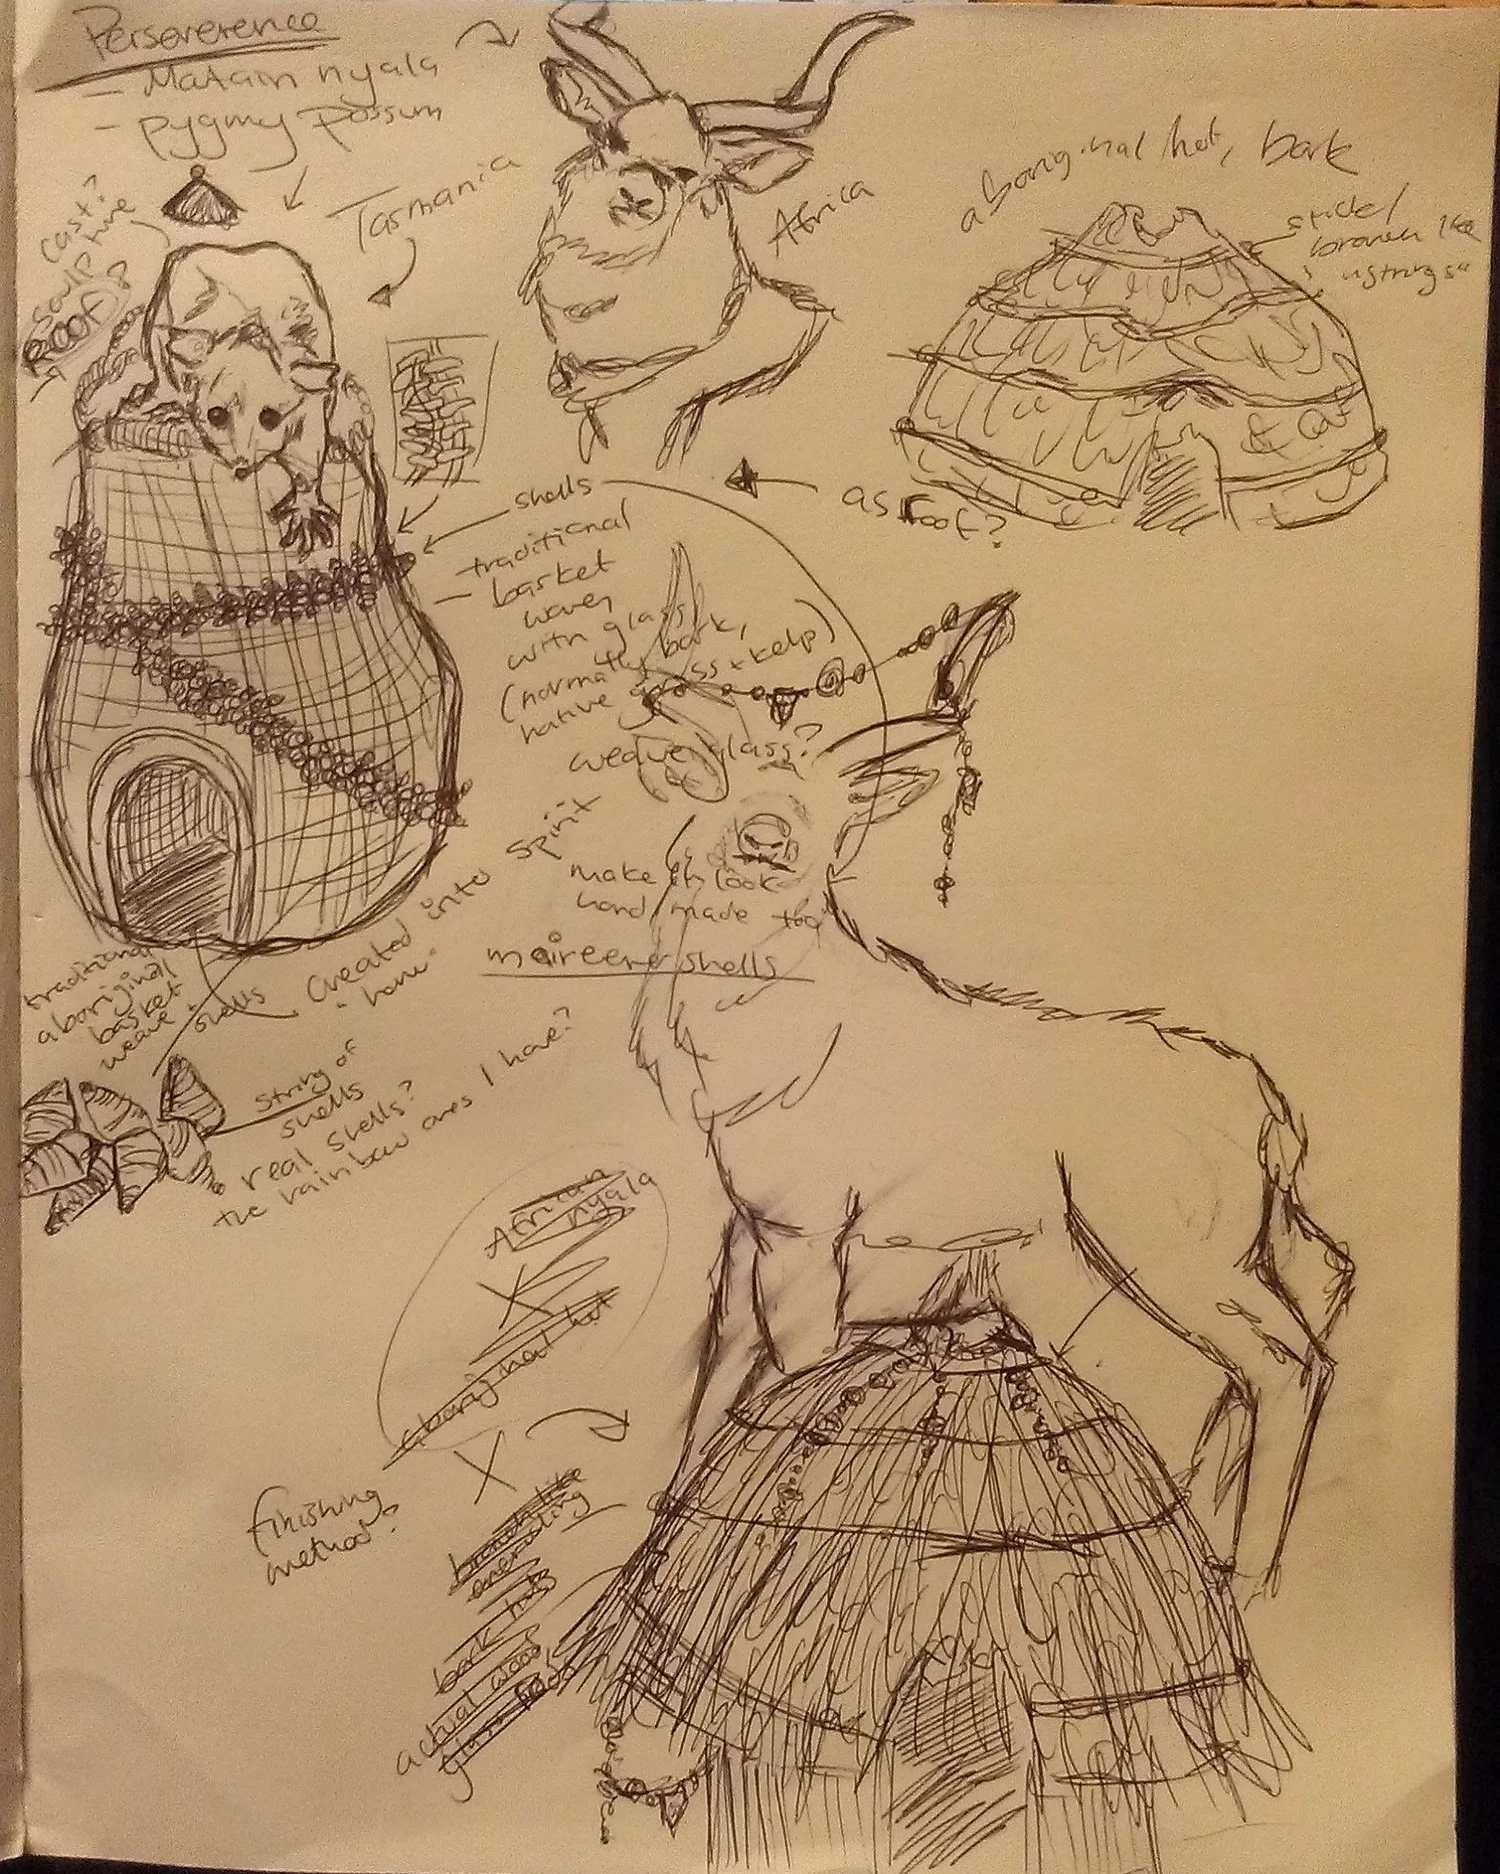 Perseverence
- Matain nyala
- pygmy possum
Tasmania
cast?
sculpture
ROOF?
Africa
aboriginal hut, bark
sticks/
as roof?
shells
- traditional
- basket
woven
with glass!
(normally bark,
native grass + kelp)
weave glass?
make em look
hand made too
maireener shells
Created into spirit
"home"
traditional
aboriginal
basket
weave +
shells
string of
shells
real shells?
the rainbow ones I have?
African
nyala
X
aboriginal hut
X
bark hut
actual wood
finishing
method?